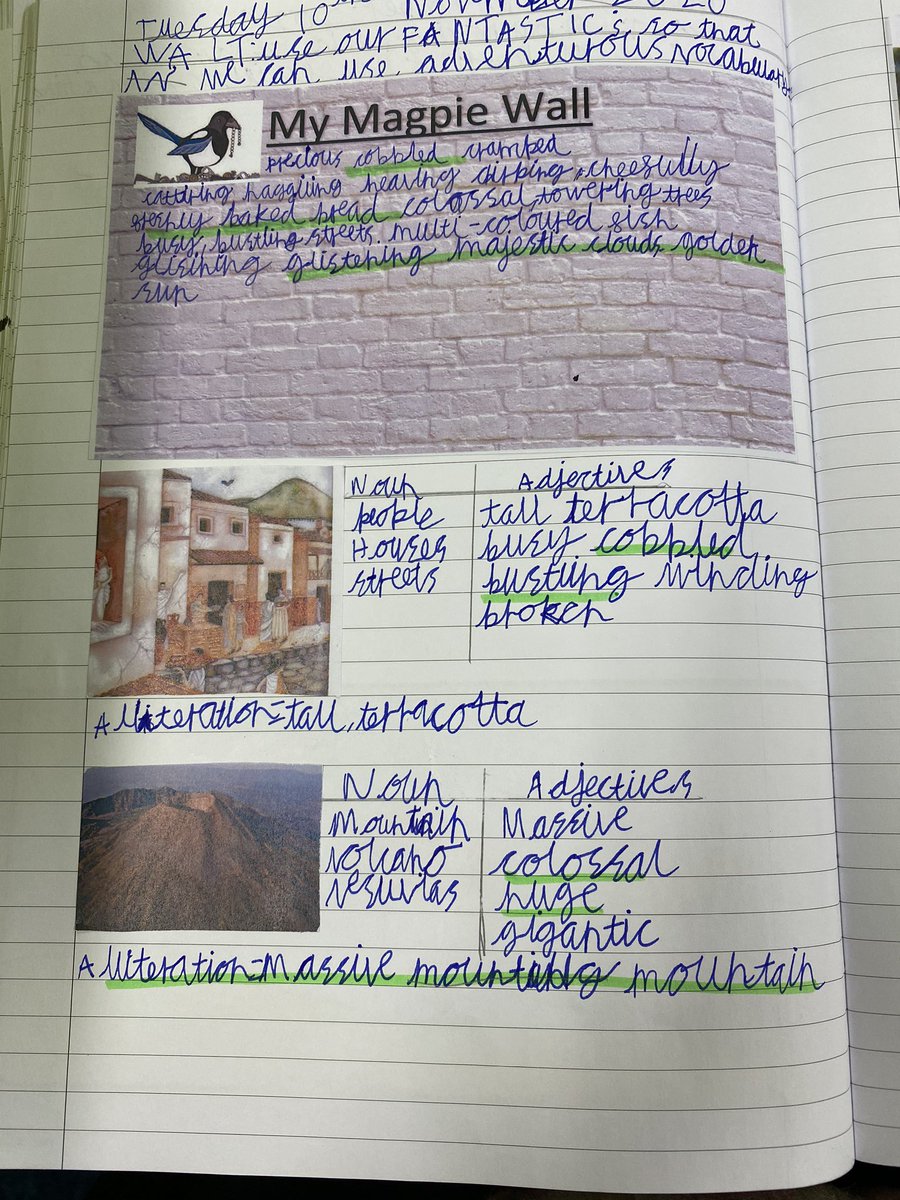 Tuesday 10th November 2020
WALT: use our FANTASTIC's so that
we can use adventurous vocabulary
My Magpie Wall
precious cobbled cramped
haggling heaving chirping cheerfully
freshly baked bread colossal, towering trees
busy, bustling streets. multi-coloured fish
glistening majestic clouds golden
sun
Noun Adjectives
people tall terracotta
Houses busy cobbled
streets bustling winding
broken
Alliteration=tall, terracotta
Noun Adjectives
Mountain Massive
volcano colossal
vesuvias huge
gigantic
Alliteration=Massive mountain